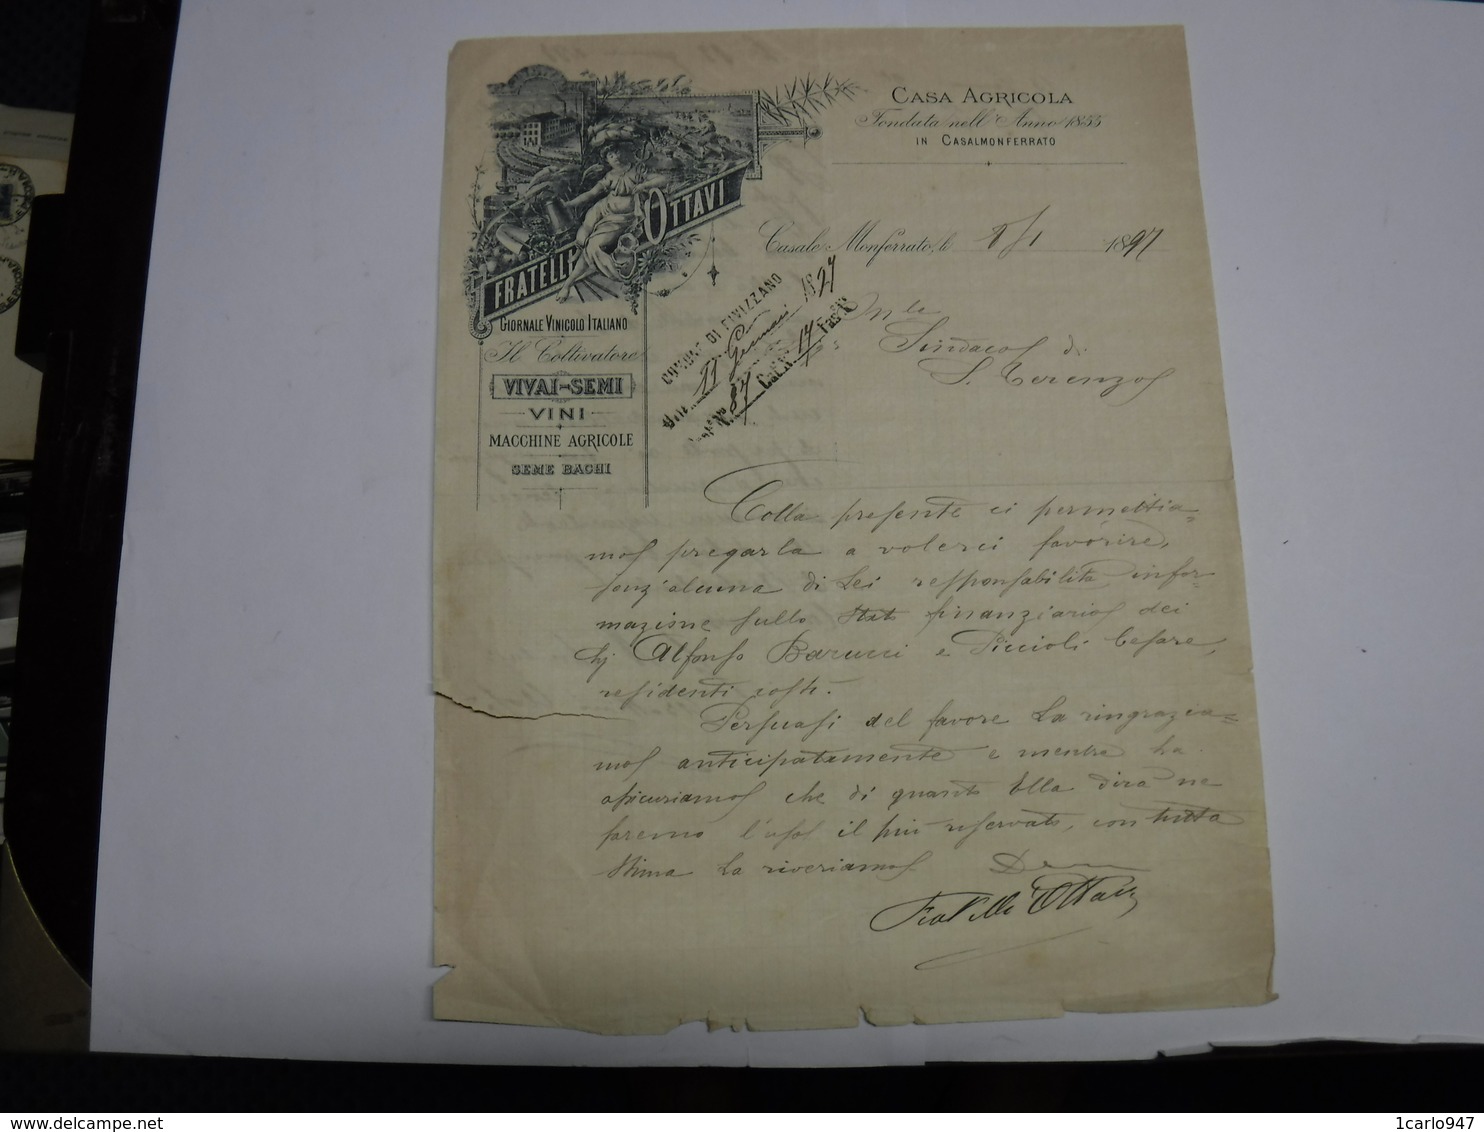 CASA AGRICOLA
Fondata nell'Anno 1855
IN CASALMONFERRATO
FRATELLI OTTAVI
GIORNALE VINICOLO ITALIANO
Il Coltivatore
VIVAI-SEMI
VINI
MACCHINE AGRICOLE
SEME BACHI
Casale Monferrato, li 8/1 1897
COMUNE DI FIVIZZANO
11 Gennaio 1897
87 Cat. 17 Fasc.
Ill.
Sindaco di
S. Terenzo
Colla presente ci permettia=
mo pregarla a volerci favorire,
senz'alcuna di Lei responsabilità, infor=
mazione sullo stato finanziario dei
Sig. Alfonso Barucci e Piccioli Cesare,
residenti costì.
Persuasi del favore La ringrazia=
mo anticipatamente e mentre La
assicuriamo che di quanto Ella dirà ne
faremo l'uso il più riservato, con tutta
stima La riveriamo
Fratelli Ottavi
delcampe.net
1carlo947